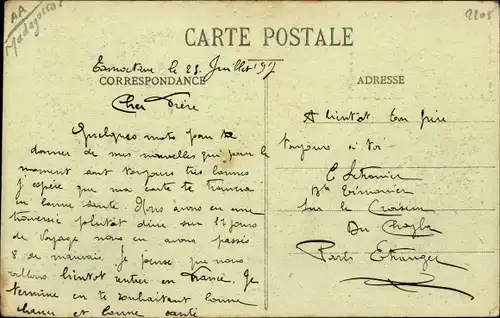 AA
Madagascar
2208
CARTE POSTALE
le 25 Juillet 197
CORRESPONDANCE
ADRESSE
Cher Frère
Quelques mots pour te
donner de mes nouvelles qui pour le
moment sont toujours très bonnes
J'espère que ma carte te trouvera
en bonne santé. Nous avons eu une
traversée plutôt dure sur 11 jours
de voyage nous en avons passés
8 de mauvais. Je pense que nous
allons bientôt rentrer en France. Je
termine en te souhaitant bonne
chance et bonne santé
A bientôt Ton frère
toujours à toi
E
Sur le Croiseur
Du Chayla
Paris Etranger